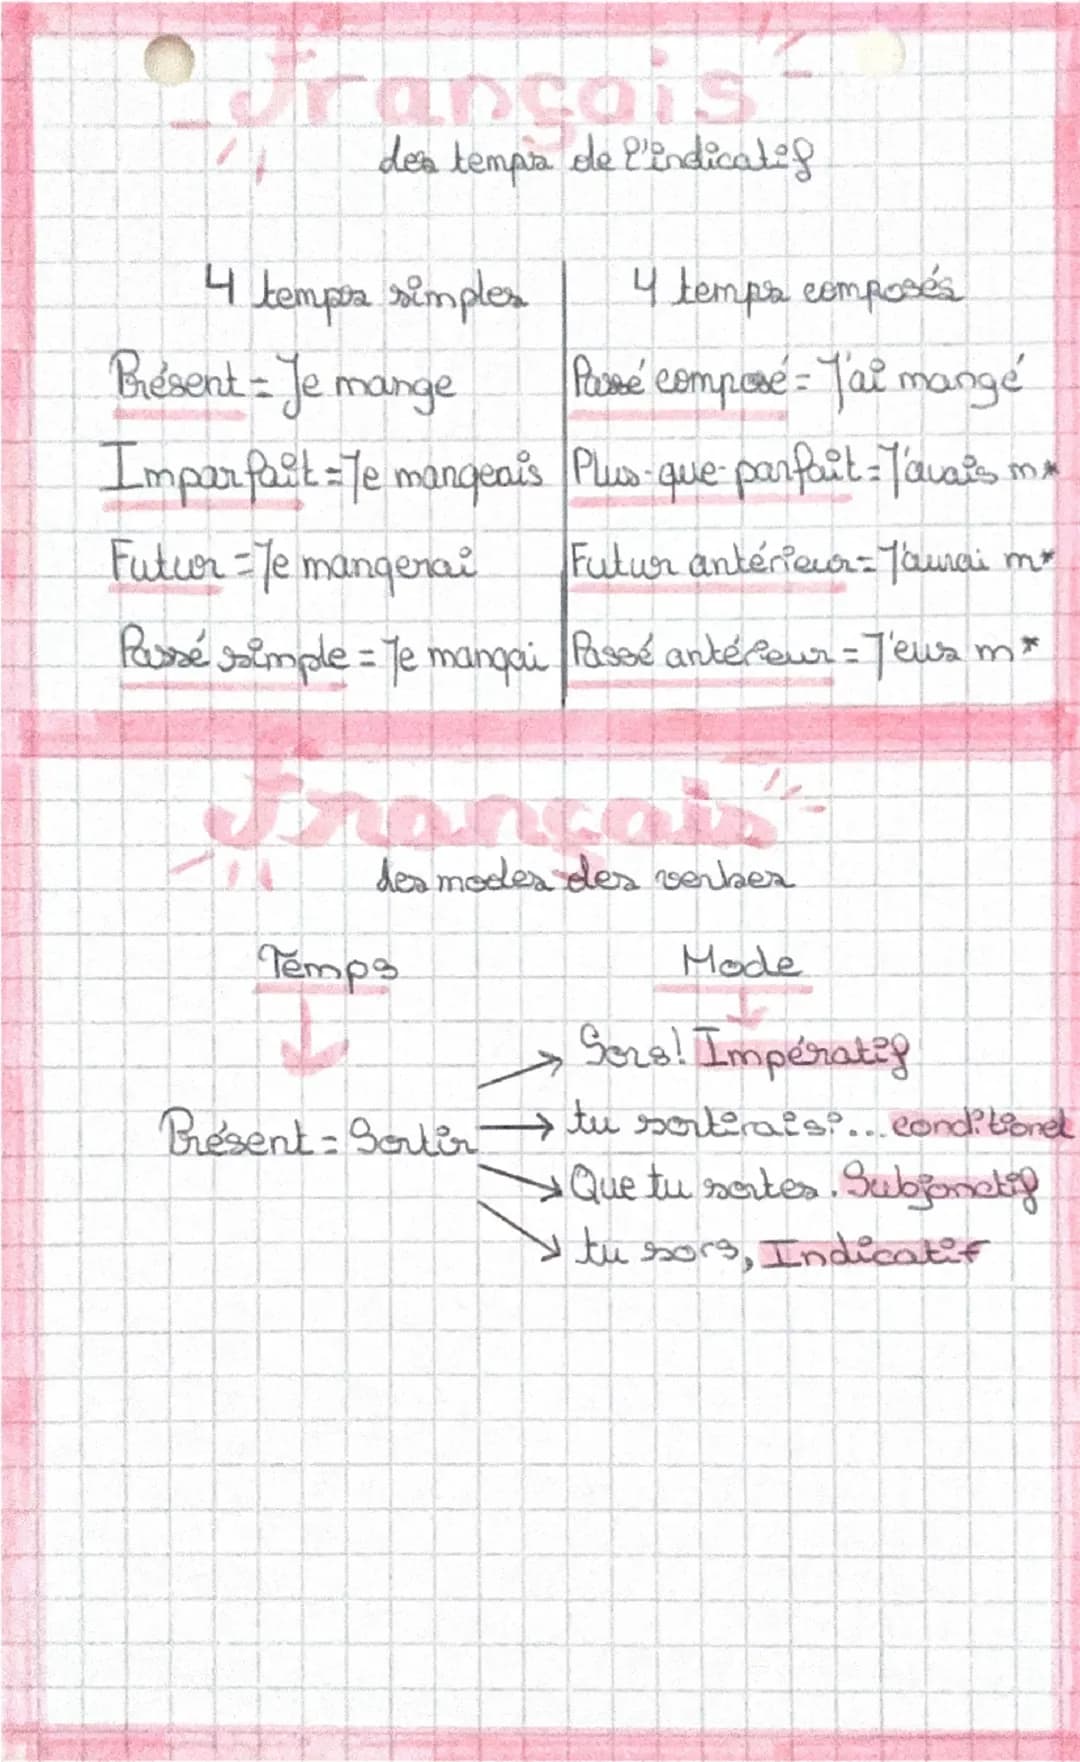 Français
des temps de l'indicatif
4 temps simples
4 temps composés
Présent = Je mange
Passé composé = J'ai mangé
Imparfait = Je mangeais
Plus-que-parfait = J'avais m*
Futur = Je mangerai
Futur antérieur = J'aurai m*
Passé simple = Je mangai
Passé antérieur = J'eus m*
Français
des modes des verbes
Temps
Mode
Sors! Impératif
tu sortirais?... conditionel
Présent = Sortir
Que tu sortes. Subjonctif
tu sors, Indicatif